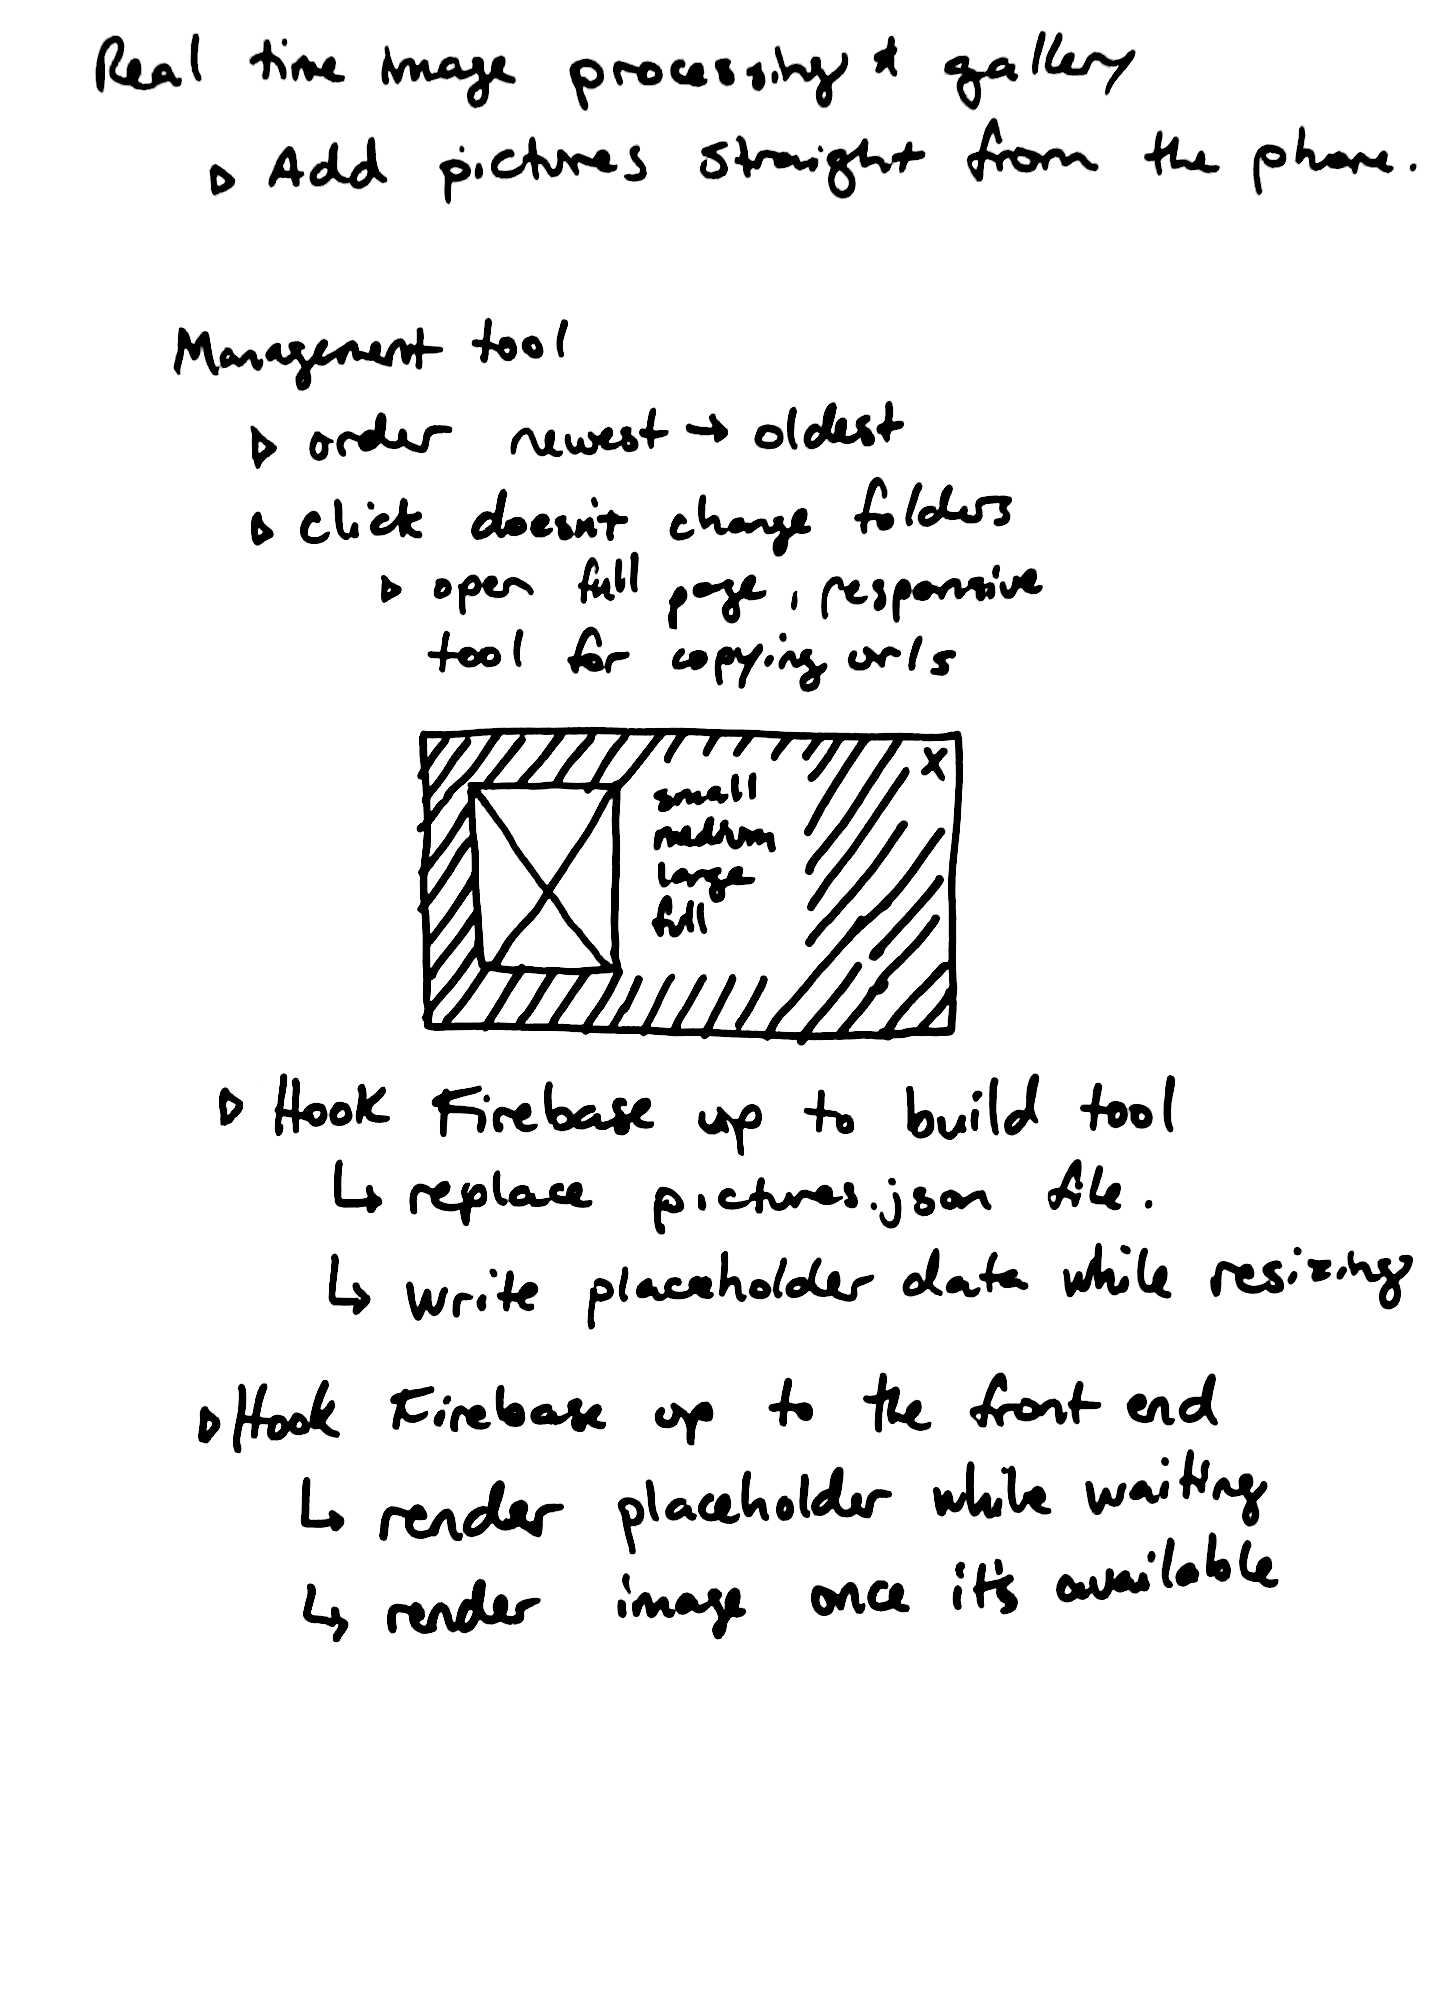 Real time image processing & gallery
▷ Add pictures straight from the phone.
Management tool
▷ order newest → oldest
▷ click doesn't change folders
▷ open full page, responsive
tool for copying urls
X
small
medium
large
full
▷ Hook Firebase up to build tool
↳ replace pictures.json file.
↳ write placeholder data while resizing
▷ Hook Firebase up to the front end
↳ render placeholder while waiting
↳ render image once it's available